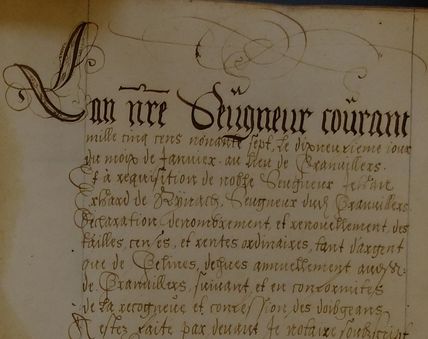 Lan nr̃e Seügneur coürant
mille cinq cens nonante sept, le dixneufieme iour
du moix de Januier. au lieu de Granuillers.
Et à requisition de noble Seugneur Jehan
Erhard de Rynach, Seugneur dud Granuillers
declaration denombrement, et renouellement, des
tailles, censes, et rentes ordinaires, tant dargent
que de Gelines, deheues annuellement audict
de Granuillers, suiuant, et en conformites
de la recogneue et confession, des
A estez faite par deuant Je notaire soubscript